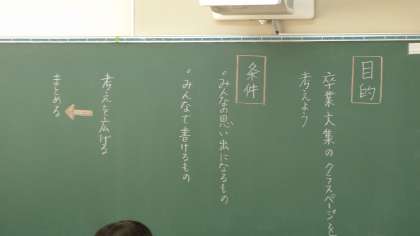 目的
卒業文集のクラスページを
考えよう
条件
・みんなの思い出になるもの
・みんなで書けるもの
考えを広げる
まとめる